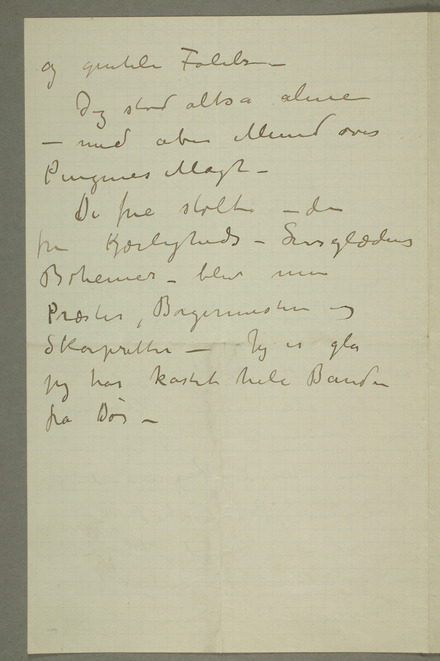 og gentile Følelse —
Jeg stod altsa alene
— med aben Mund over
Pengenes Magt —
De frie stolte — den
frie Kjærligheds — Livsglædens
Bohemer — blev mine
Præster, Borgermestere og
Skarpretter — Jeg er glad
jeg har kastet hele Banden
fra Dør —